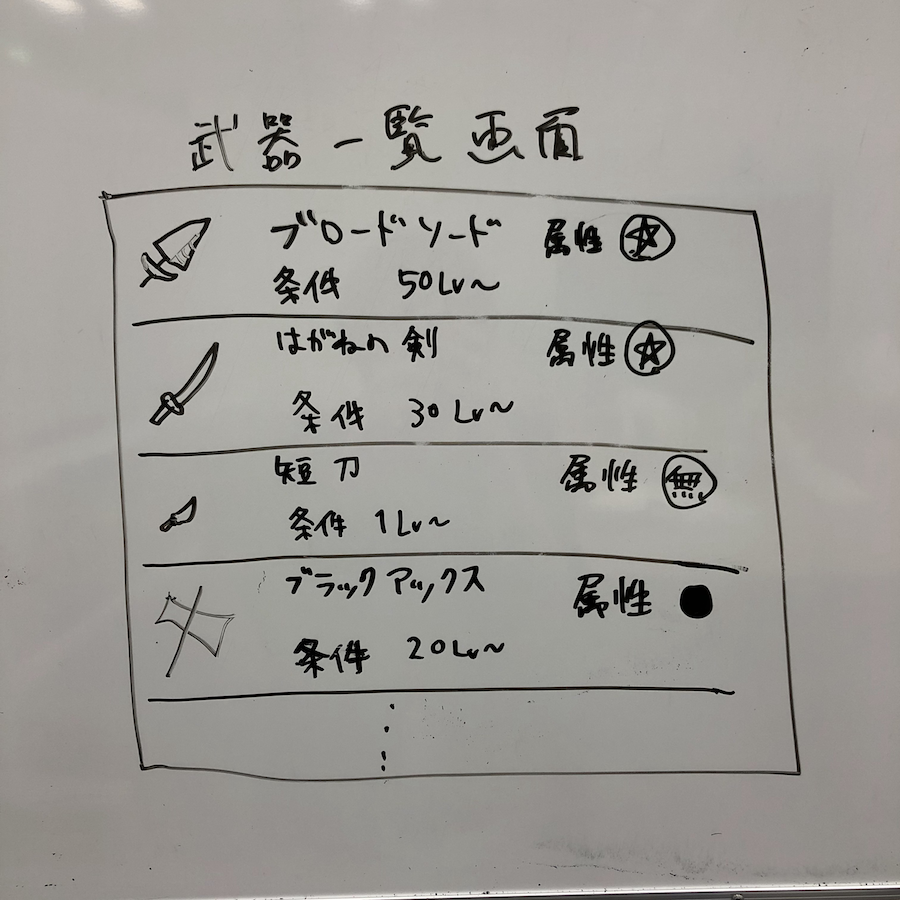 武器一覧画面
ブロードソード 属性 ☆
条件 50Lv~
はがねの剣 属性 ☆
条件 30Lv~
短刀 属性 無
条件 1Lv~
ブラックアックス 属性 ●
条件 20Lv~